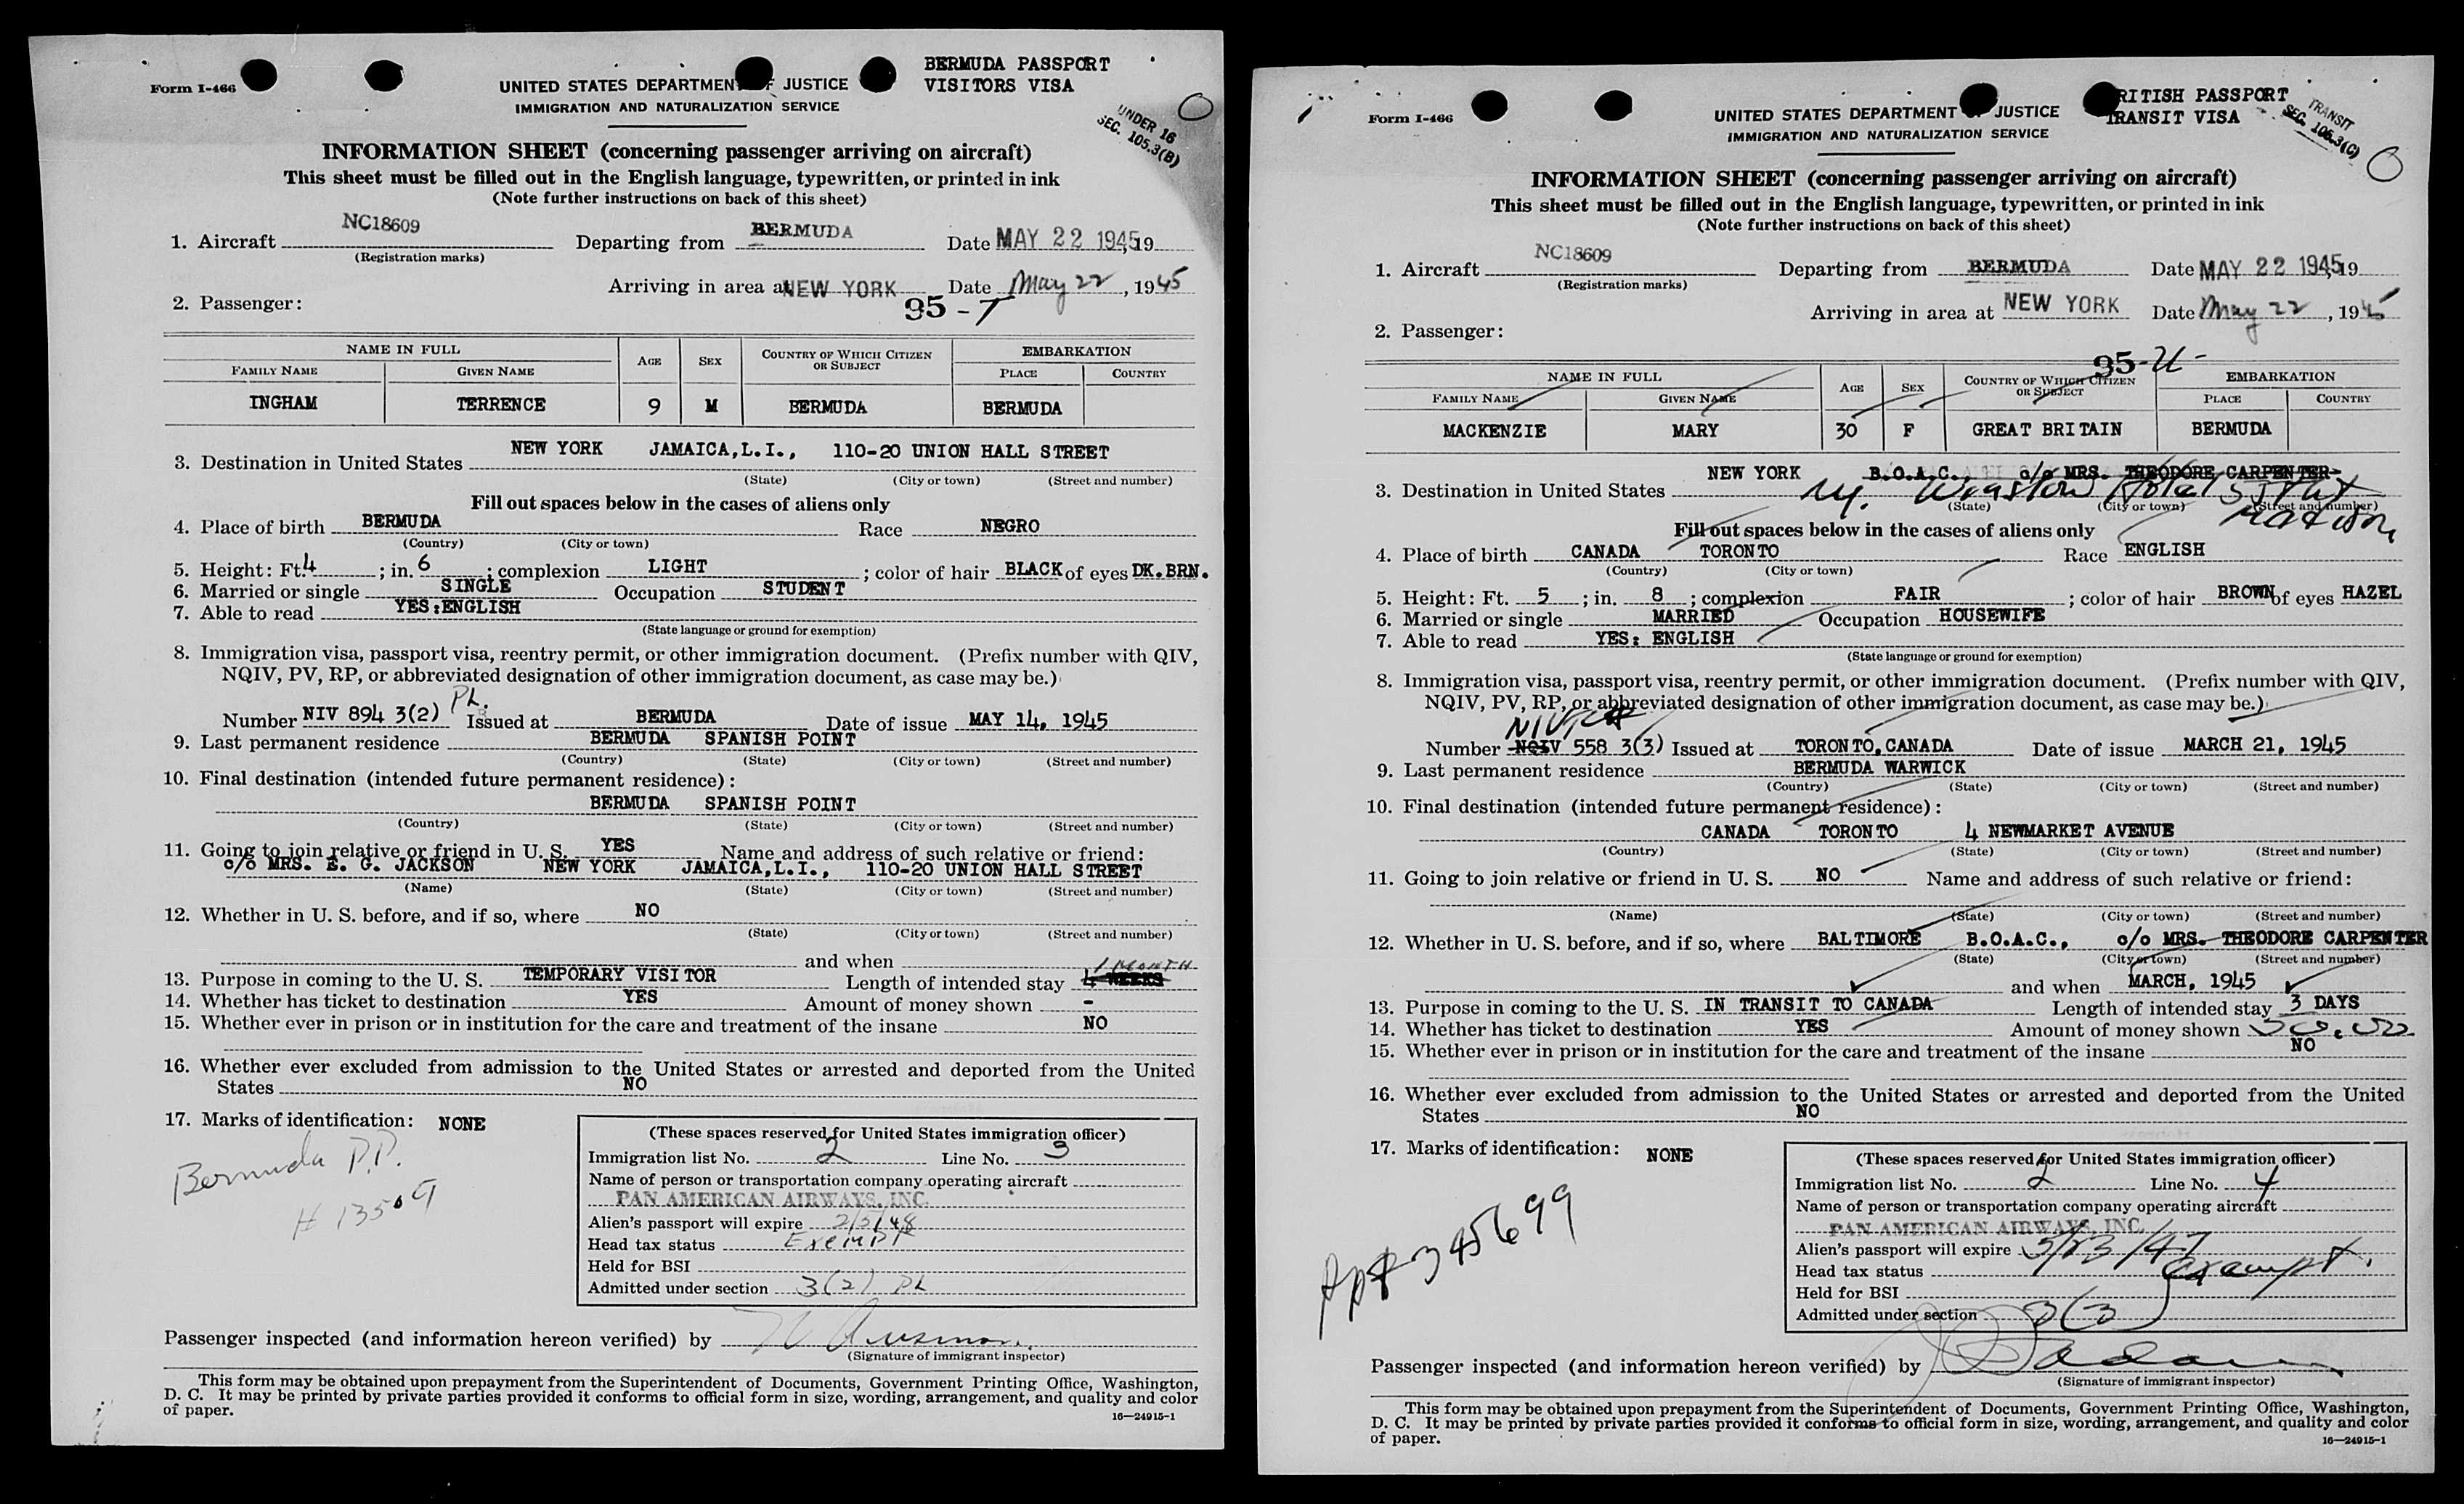 Form I-466
UNITED STATES DEPARTMENT OF JUSTICE
IMMIGRATION AND NATURALIZATION SERVICE
BERMUDA PASSPORT
VISITORS VISA
UNDER 16
SEC. 105.3(B)
INFORMATION SHEET (concerning passenger arriving on aircraft)
This sheet must be filled out in the English language, typewritten, or printed in ink
(Note further instructions on back of this sheet)
1. Aircraft NC18609 Departing from BERMUDA Date MAY 22 1945, 19
(Registration marks)
Arriving in area at NEW YORK Date May 22, 1945
2. Passenger: 95-T
NAME IN FULL AGE SEX COUNTRY OF WHICH CITIZEN OR SUBJECT EMBARKATION
FAMILY NAME GIVEN NAME PLACE COUNTRY
INGHAM TERRENCE 9 M BERMUDA BERMUDA
3. Destination in United States NEW YORK JAMAICA, L.I., 110-20 UNION HALL STREET
(State) (City or town) (Street and number)
Fill out spaces below in the cases of aliens only
4. Place of birth BERMUDA Race NEGRO
(Country) (City or town)
5. Height: Ft. 4; in. 6; complexion LIGHT; color of hair BLACK of eyes DK. BRN.
6. Married or single SINGLE Occupation STUDENT
7. Able to read YES: ENGLISH
(State language or ground for exemption)
8. Immigration visa, passport visa, reentry permit, or other immigration document. (Prefix number with QIV,
NQIV, PV, RP, or abbreviated designation of other immigration document, as case may be.)
Number NIV 894 3(2) PL. Issued at BERMUDA Date of issue MAY 14, 1945
9. Last permanent residence BERMUDA SPANISH POINT
(Country) (State) (City or town) (Street and number)
10. Final destination (intended future permanent residence):
BERMUDA SPANISH POINT
(Country) (State) (City or town) (Street and number)
11. Going to join relative or friend in U. S. YES Name and address of such relative or friend:
c/o MRS. E. G. JACKSON NEW YORK JAMAICA, L.I., 110-20 UNION HALL STREET
(Name) (State) (City or town) (Street and number)
12. Whether in U. S. before, and if so, where NO
(State) (City or town) (Street and number)
and when
1 MONTH
13. Purpose in coming to the U. S. TEMPORARY VISITOR Length of intended stay 4 WEEKS
14. Whether has ticket to destination YES Amount of money shown -
15. Whether ever in prison or in institution for the care and treatment of the insane NO
16. Whether ever excluded from admission to the United States or arrested and deported from the United
States NO
17. Marks of identification: NONE
Bermuda P.P.
# 13509
(These spaces reserved for United States immigration officer)
Immigration list No. 2 Line No. 3
Name of person or transportation company operating aircraft
PAN AMERICAN AIRWAYS, INC.
Alien's passport will expire 2/5/48
Head tax status Exempt
Held for BSI
Admitted under section 3(2) PL
Passenger inspected (and information hereon verified) by
(Signature of immigrant inspector)
This form may be obtained upon prepayment from the Superintendent of Documents, Government Printing Office, Washington,
D. C. It may be printed by private parties provided it conforms to official form in size, wording, arrangement, and quality and color
of paper.
16—24915-1
Form I-466
UNITED STATES DEPARTMENT OF JUSTICE
IMMIGRATION AND NATURALIZATION SERVICE
BRITISH PASSPORT
TRANSIT VISA
TRANSIT
SEC. 105.3(C)
INFORMATION SHEET (concerning passenger arriving on aircraft)
This sheet must be filled out in the English language, typewritten, or printed in ink
(Note further instructions on back of this sheet)
1. Aircraft NC18609 Departing from BERMUDA Date MAY 22 1945, 19
(Registration marks)
Arriving in area at NEW YORK Date May 22, 1945
2. Passenger: 95-U-
NAME IN FULL AGE SEX COUNTRY OF WHICH CITIZEN OR SUBJECT EMBARKATION
FAMILY NAME GIVEN NAME PLACE COUNTRY
MACKENZIE MARY 30 F GREAT BRITAIN BERMUDA
3. Destination in United States NEW YORK B.O.A.C., c/o MRS. THEODORE CARPENTER
N.Y. Winston Hotel Madison
(State) (City or town) (Street and number)
Fill out spaces below in the cases of aliens only
4. Place of birth CANADA TORONTO Race ENGLISH
(Country) (City or town)
5. Height: Ft. 5; in. 8; complexion FAIR; color of hair BROWN of eyes HAZEL
6. Married or single MARRIED Occupation HOUSEWIFE
7. Able to read YES: ENGLISH
(State language or ground for exemption)
8. Immigration visa, passport visa, reentry permit, or other immigration document. (Prefix number with QIV,
NQIV, PV, RP, or abbreviated designation of other immigration document, as case may be.)
Number NQIV 558 3(3) Issued at TORONTO, CANADA Date of issue MARCH 21, 1945
9. Last permanent residence BERMUDA WARWICK
(Country) (State) (City or town) (Street and number)
10. Final destination (intended future permanent residence):
CANADA TORONTO 4 NEWMARKET AVENUE
(Country) (State) (City or town) (Street and number)
11. Going to join relative or friend in U. S. NO Name and address of such relative or friend:
(Name) (State) (City or town) (Street and number)
12. Whether in U. S. before, and if so, where BALTIMORE B.O.A.C., c/o MRS. THEODORE CARPENTER
(State) (City or town) (Street and number)
and when MARCH, 1945
13. Purpose in coming to the U. S. IN TRANSIT TO CANADA Length of intended stay 3 DAYS
14. Whether has ticket to destination YES Amount of money shown
15. Whether ever in prison or in institution for the care and treatment of the insane NO
16. Whether ever excluded from admission to the United States or arrested and deported from the United
States NO
17. Marks of identification: NONE
345699
(These spaces reserved for United States immigration officer)
Immigration list No. 2 Line No. 4
Name of person or transportation company operating aircraft
PAN AMERICAN AIRWAYS, INC.
Alien's passport will expire 3/23/47
Head tax status exempt.
Held for BSI
Admitted under section 3(3)
Passenger inspected (and information hereon verified) by
(Signature of immigrant inspector)
This form may be obtained upon prepayment from the Superintendent of Documents, Government Printing Office, Washington,
D. C. It may be printed by private parties provided it conforms to official form in size, wording, arrangement, and quality and color
of paper.
16—24915-1